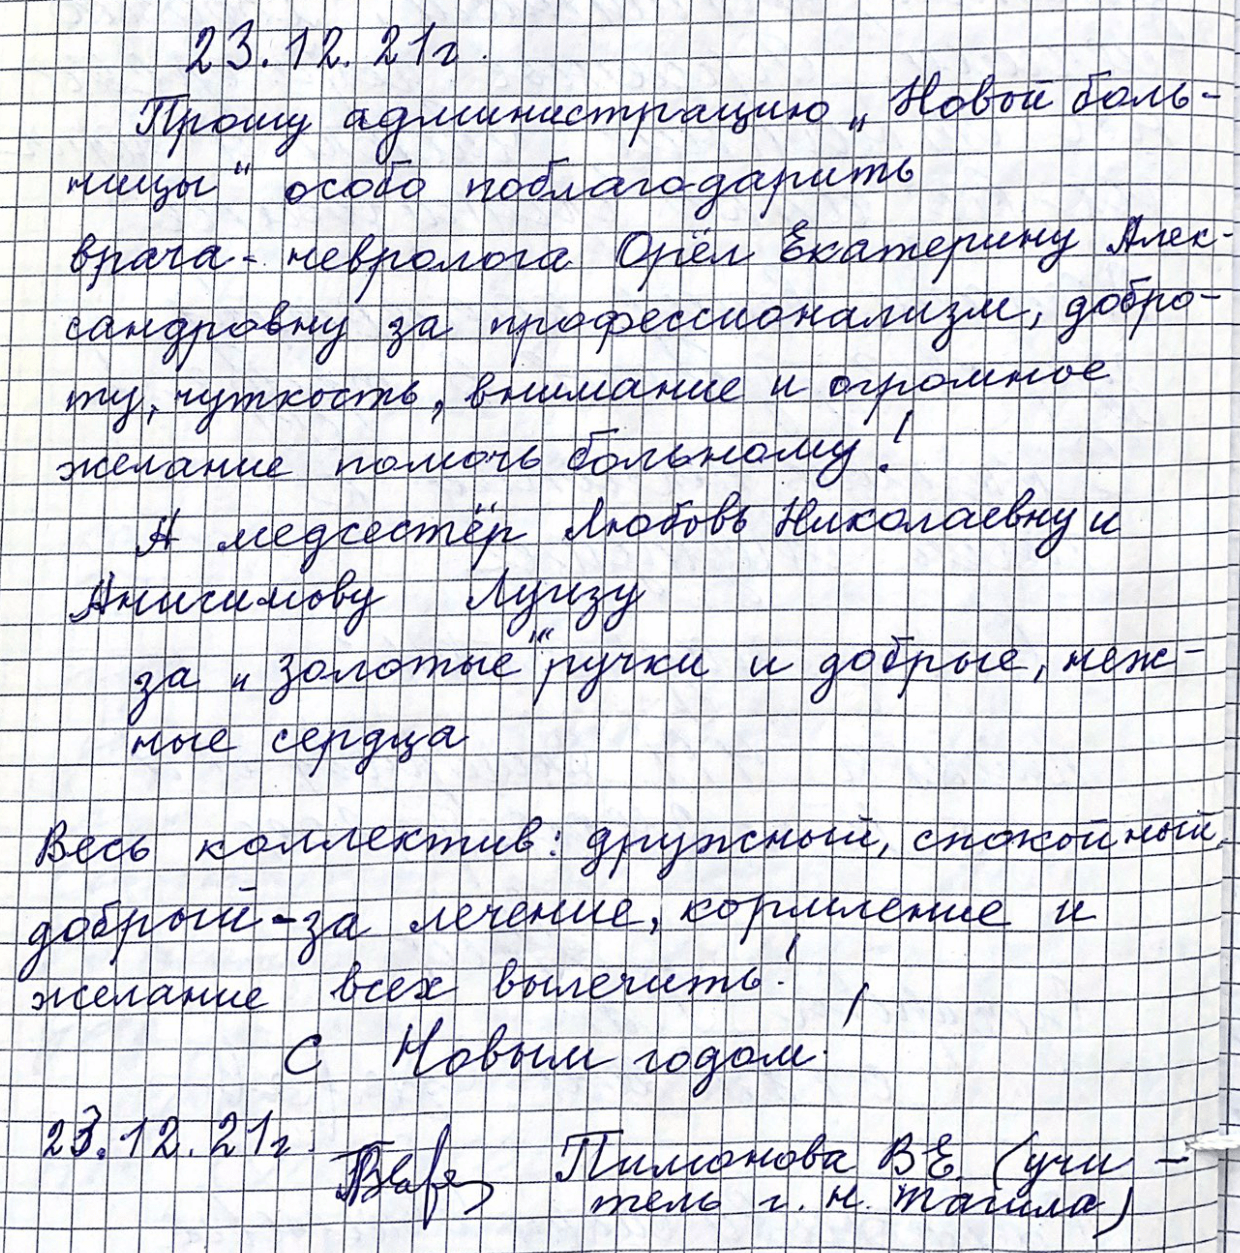 23.12.21г.
Прошу администрацию „Новой боль-
ницы" особо поблагодарить
врача-невролога Орёл Екатерину Алек-
сандровну за профессионализм, добро-
ту, чуткость, внимание и огромное
желание помочь больному!
А медсестёр Любовь Николаевну и
Анисимову Луизу
за „золотые" ручки и добрые, неж-
ные сердца
Весь коллектив: дружный, спокойный,
добрый - за лечение, кормление и
желание всех вылечить!
С Новым годом!
23.12.21г. Пимонова В.Е. (учи-
тель г. Н. Тагила)